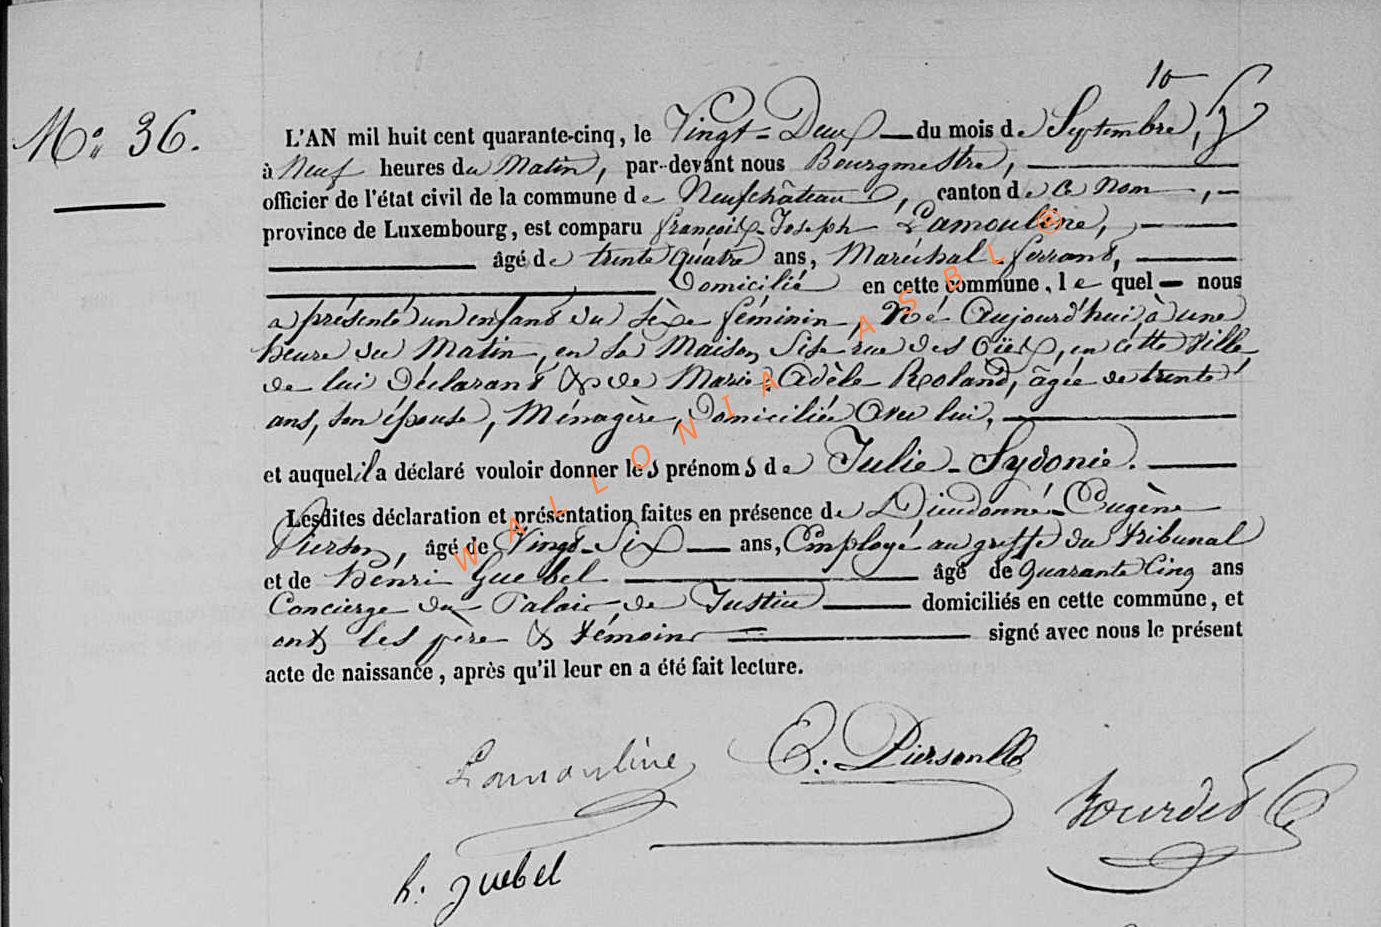 10
N° 36.
L'AN mil huit cent quarante-cinq, le Vingt-Deux du mois de Septembre,
à Neuf heures du Matin, par-devant nous Bourgmestre,
officier de l'état civil de la commune de Neufchâteau, canton de ce nom,
province de Luxembourg, est comparu françois-Joseph Lamouline,
âgé de trente quatre ans, Maréchal-ferrant,
Domicilié en cette commune, le quel nous
a présenté un enfant du sèxe féminin, Né Aujourd'hui, à une
heure du Matin, en sa Maison, sise rue des en cette Ville
de lui Déclarant & de Marie-Adèle Roland, âgée de trente
ans, son épouse, Ménagère, Domiciliée Avec lui,
et auquel il a déclaré vouloir donner les prénoms de Julie-Sydonie.
Lesdites déclaration et présentation faites en présence de Dieudonné-Eugène
Pierson, âgé de Vingt-Six ans, Employé au greffe du tribunal
et de Hénri Guebel âgé de quarante Cinq ans
Concierge du Palais de Justice domiciliés en cette commune, et
ont les père & témoins signé avec nous le présent
acte de naissance, après qu'il leur en a été fait lecture.
Lamouline
E. Pierson
Bourdet
h. guebel
WALLONIA ASBL ©